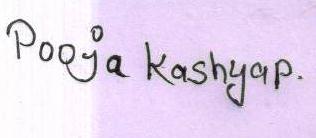 Pooja Kashyap.